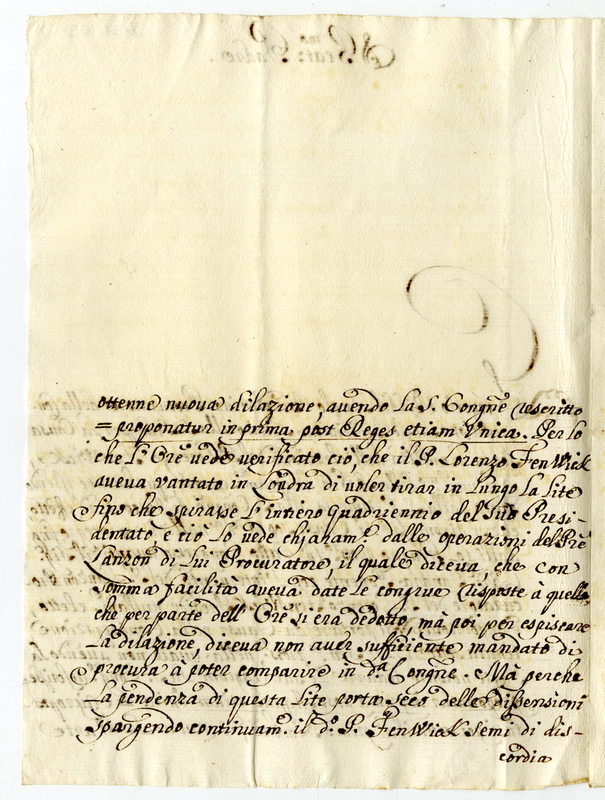 ottenne nuova dilazione, avendo la S. Congñe rescritto
= proponatur in prima post Reges etiam Unica. Per lo
che l'Orẽ vede verificato ciò, che il P. Lorenzo FenWick
aveva vantato in Londra di voler tirar in lungo la lite
fino che spirasse l'intiero quadriennio del suo Presi-
dentato, e ciò lo vede chiaram.e dalle operazioni del Prẽ
Lanzon di lui Procuratore, il quale diceva, che con
somma facilità aveva date le congrue risposte à quello
che per parte dell'Orẽ si era dedotto, mà poi per espiscare
la dilazione, diceva non aver sufficiente mandato di
procura à poter comparire in d.a Congñe. Mà perche
la pendenza di questa lite porta seco delle dissensioni
spargendo continuam.e il d.o P. FenWick semi di dis-
cordia